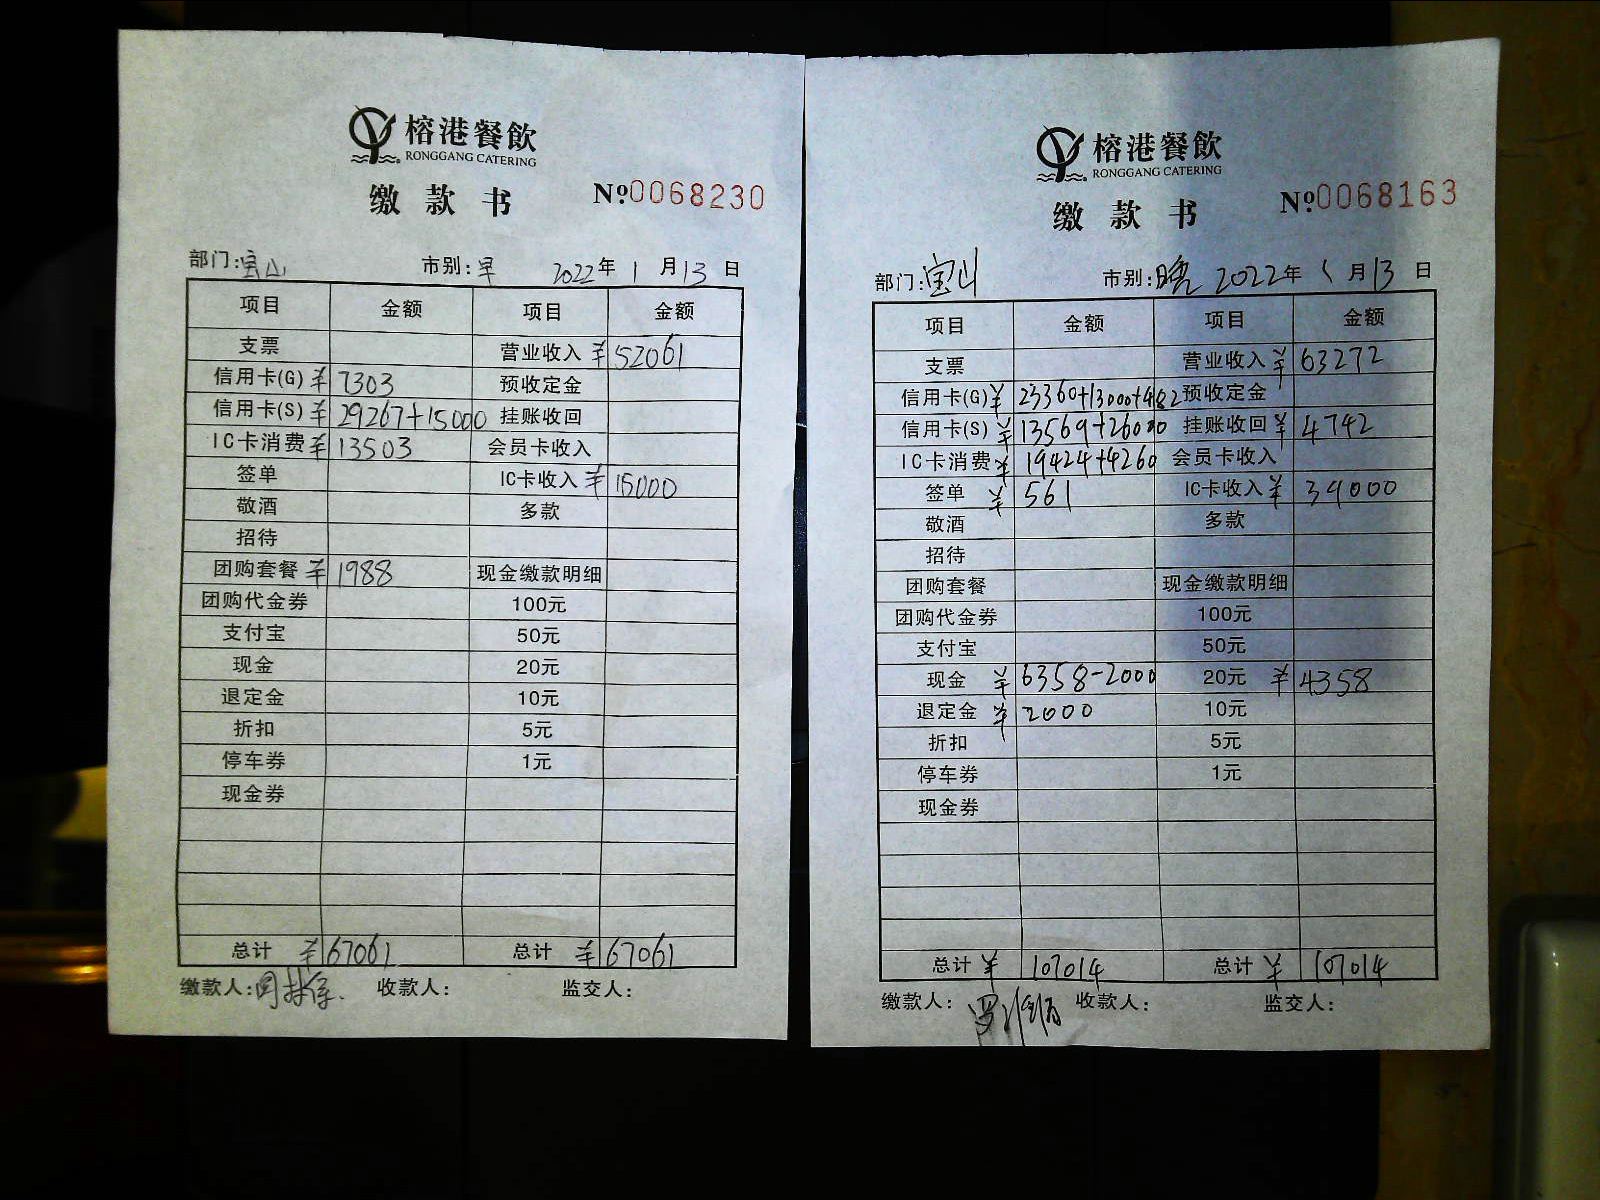 榕港餐飲
RONGGANG CATERING
缴款书 №0068230
部门:宝山 市别:早 2022年1月13日
项目 金额 项目 金额
支票 营业收入 ¥52061
信用卡(G) ¥7303 预收定金
信用卡(S) ¥29267+15000 挂账收回
IC卡消费 ¥13503 会员卡收入
签单 IC卡收入 ¥15000
敬酒 多款
招待
团购套餐 ¥1988 现金缴款明细
团购代金券 100元
支付宝 50元
现金 20元
退定金 10元
折扣 5元
停车券 1元
现金券
总计 ¥67061 总计 ¥67061
缴款人: 收款人: 监交人:
榕港餐飲
RONGGANG CATERING
缴款书 №0068163
部门:宝山 市别:晚 2022年1月13日
项目 金额 项目 金额
支票 营业收入 ¥63272
信用卡(G) ¥ 预收定金
信用卡(S) ¥13569+26000 挂账收回 ¥4742
IC卡消费 ¥19424+4260 会员卡收入
签单 ¥561 IC卡收入 ¥39000
敬酒 多款
招待
团购套餐 现金缴款明细
团购代金券 100元
支付宝 50元
现金 ¥6358-2000 20元 ¥4358
退定金 ¥2000 10元
折扣 5元
停车券 1元
现金券
总计 ¥107014 总计 ¥107014
缴款人: 收款人: 监交人: